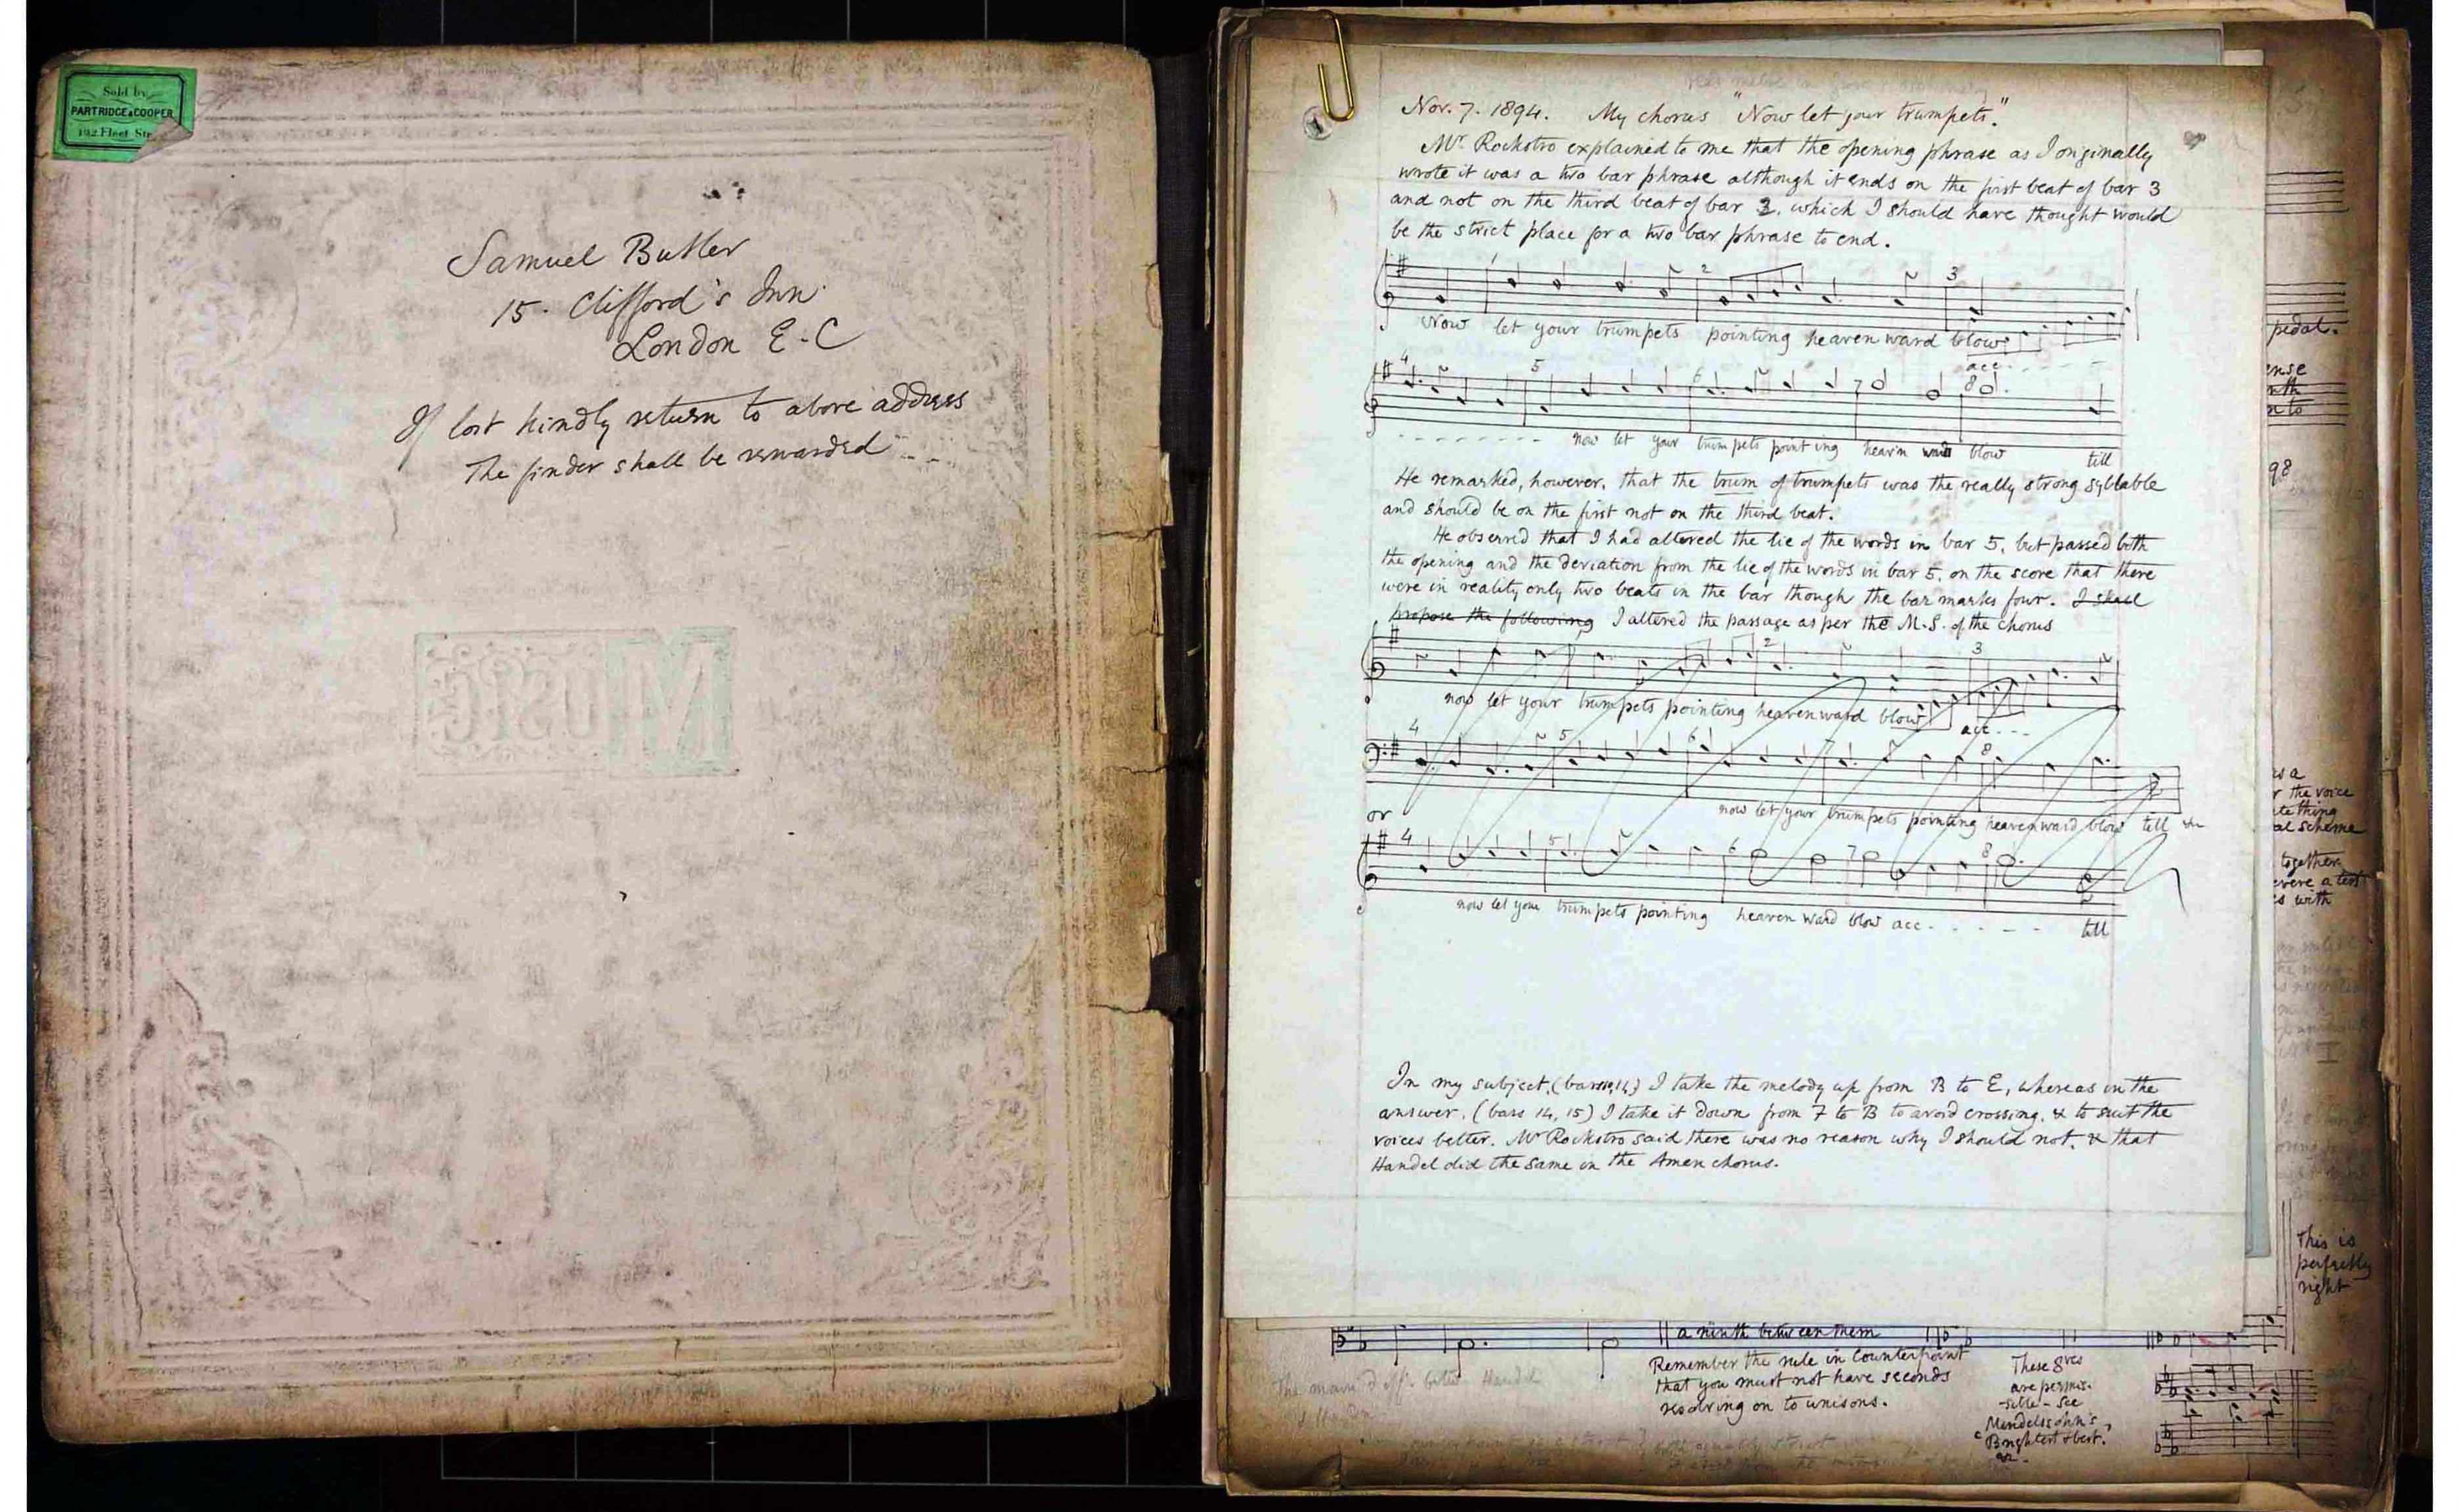 Sold by
PARTRIDGE & COOPER
192 Fleet Str
Samuel Butler
15. Clifford's Inn.
London E.C
If lost kindly return to above address
The finder shall be rewarded
MUSIC
Nov. 7. 1894. My chorus "Now let your trumpets."
Mr Rockstro explained to me that the opening phrase as I originally
wrote it was a two bar phrase although it ends on the first beat of bar 3
and not on the third beat of bar 2, which I should have thought would
be the strict place for a two bar phrase to end.
1 2 3
Now let your trumpets pointing heaven ward blow
acc
4 5 6 7 8
now let your trumpets pointing heav'n ward blow till
He remarked, however, that the trum of trumpets was the really strong syllable
and should be on the first not on the third beat.
He observed that I had altered the lie of the words in bar 5, but passed both
the opening and the deviation from the lie of the words in bar 5, on the score that there
were in reality only two beats in the bar though the bar marks four. I shall
propose the following I altered the passage as per the M.S. of the chorus
2 3
now let your trumpets pointing heavenward blow
acc
4 5 6 7 8
now let your trumpets pointing heavenward blow till
or
4 5 6 7 8
now let your trumpets pointing heaven ward blow acc till
In my subject, (bars I take the melody up from B to E, whereas in the
answer, (bars 14, 15) I take it down from 7 to B to avoid crossing, & to suit the
voices better. Mr Rockstro said there was no reason why I should not, & that
Handel did the same in the Amen chorus.
pedal.
98
r the voice
al scheme
together
with
This is
perfectly
right
a ninth between them
Remember the rule in Counterpoint
that you must not have seconds
resolving on to unisons.
These 8ves
are permis-
-sible - see
Mendelssohn's
"Brightest & best."